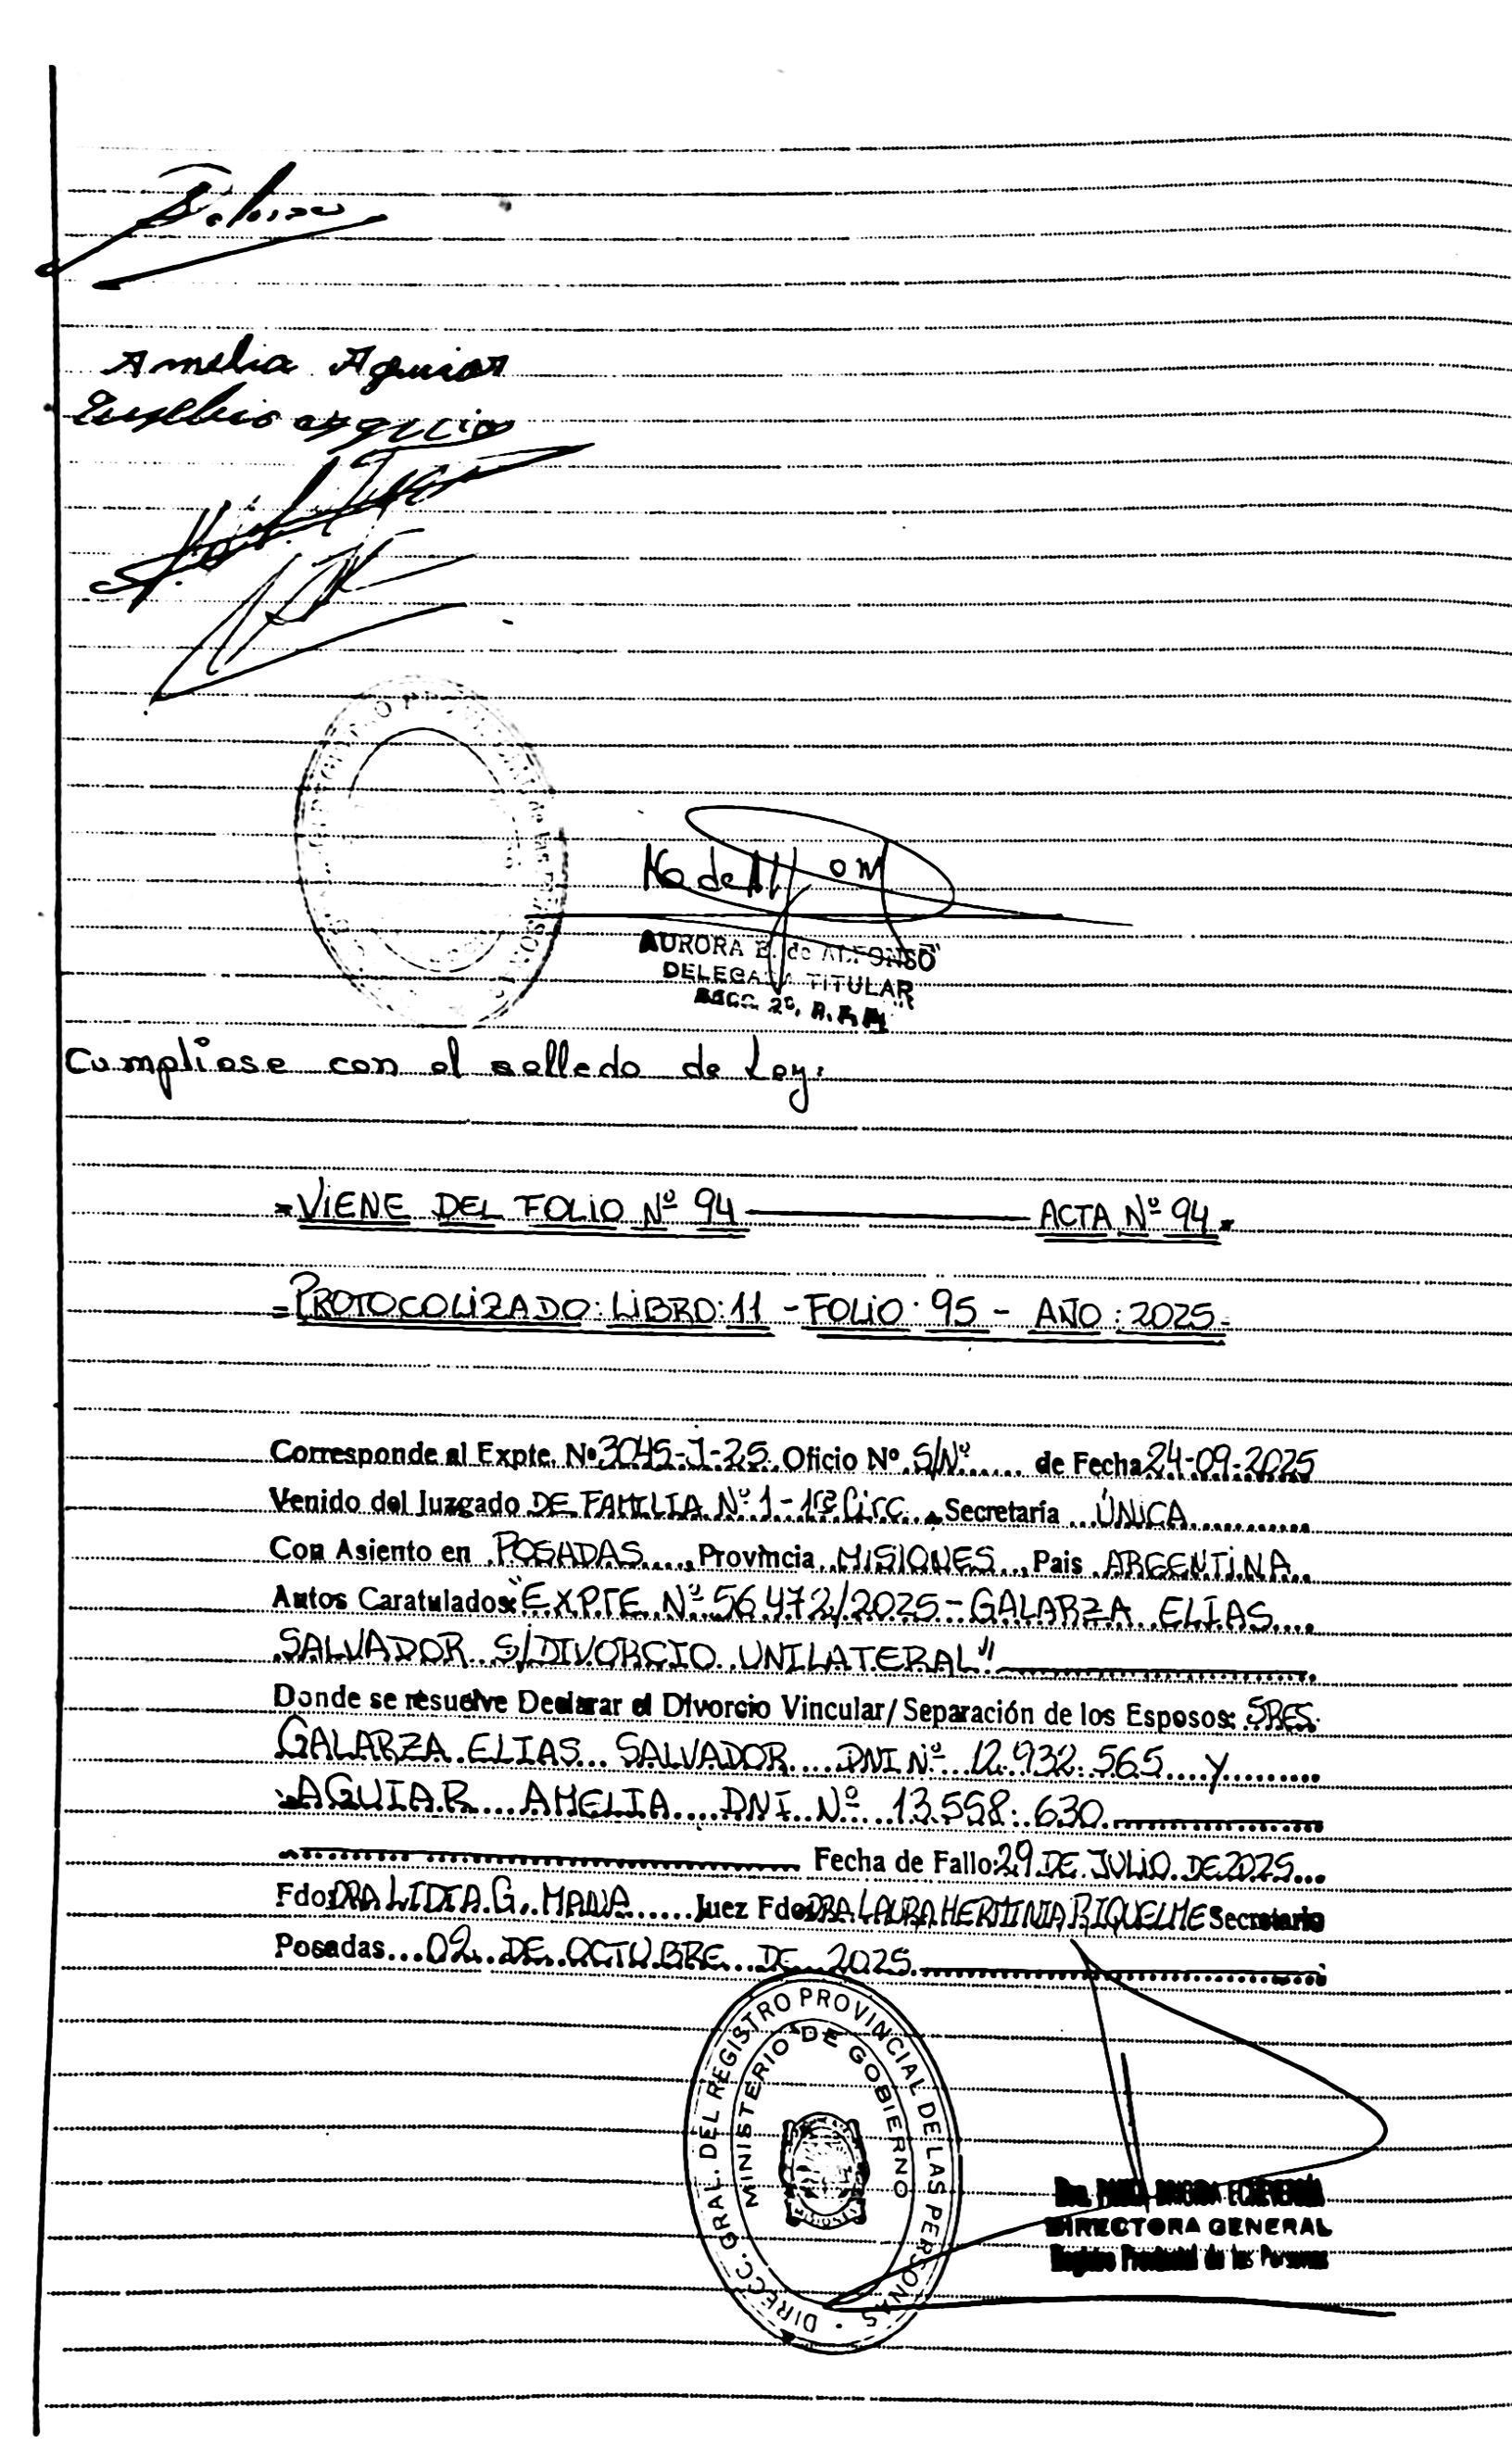 Amelia Aguiar
AURORA E. de ALFONSO
DELEGADA TITULAR
SECC. 2º, R.P.P.
Cumpliose con el sellado de Ley.
=VIENE DEL FOLIO Nº 94 ——— ACTA Nº 94.=
=PROTOCOLIZADO: LIBRO: 11 - FOLIO: 95 - AÑO: 2025=
Corresponde al Expte. Nº 3045-J-25. Oficio Nº S/Nº...... de Fecha 24-09-2025
Venido del Juzgado DE FAMILIA Nº 1 - 1ra Circ. Secretaría ...ÚNICA...........
Con Asiento en .POSADAS...., Provincia ..MISIONES.., Pais .ARGENTINA..
Autos Caratulados: "EXPTE Nº 56.472/2025 - GALARZA ELIAS....
SALVADOR S/DIVORCIO UNILATERAL"
Donde se resuelve Declarar el Divorcio Vincular/ Separación de los Esposos: SRES.
GALARZA ELIAS... SALVADOR.... DNI Nº 12.932.565....y.........
AGUIAR... AMELIA.... DNI.. Nº...13.558.630.
Fecha de Fallo: 29 DE JULIO DE 2025...
Fdo: DRA LIDIA G. MANA......Juez Fdo: DRA LAURA HERMINIA RIQUELME Secretario
Posadas...02 DE OCTUBRE DE 2025.
DIRECC. GRAL. DEL REGISTRO PROVINCIAL DE LAS PERSONAS
MINISTERIO DE GOBIERNO
DIRECTORA GENERAL
Registro Provincial de las Personas